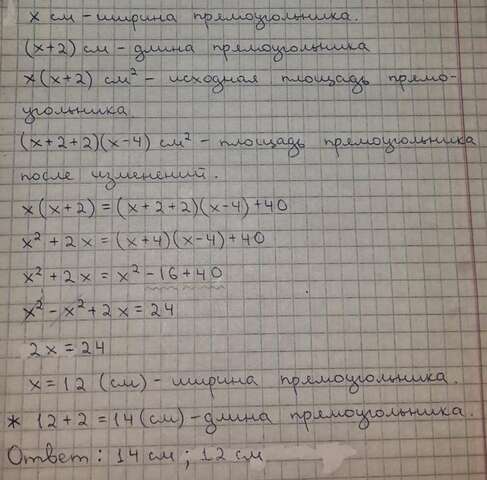 x см - ширина прямоугольника.
(x+2) см - длина прямоугольника
x(x+2) см² - исходная площадь прямо-
угольника.
(x+2+2)(x-4) см² - площадь прямоугольника
после изменений.
x(x+2) = (x+2+2)(x-4)+40
x² + 2x = (x+4)(x-4)+40
x² + 2x = x² - 16 + 40
x² - x² + 2x = 24
2x = 24
x = 12 (см) - ширина прямоугольника.
* 12+2 = 14 (см) - длина прямоугольника.
Ответ: 14 см ; 12 см